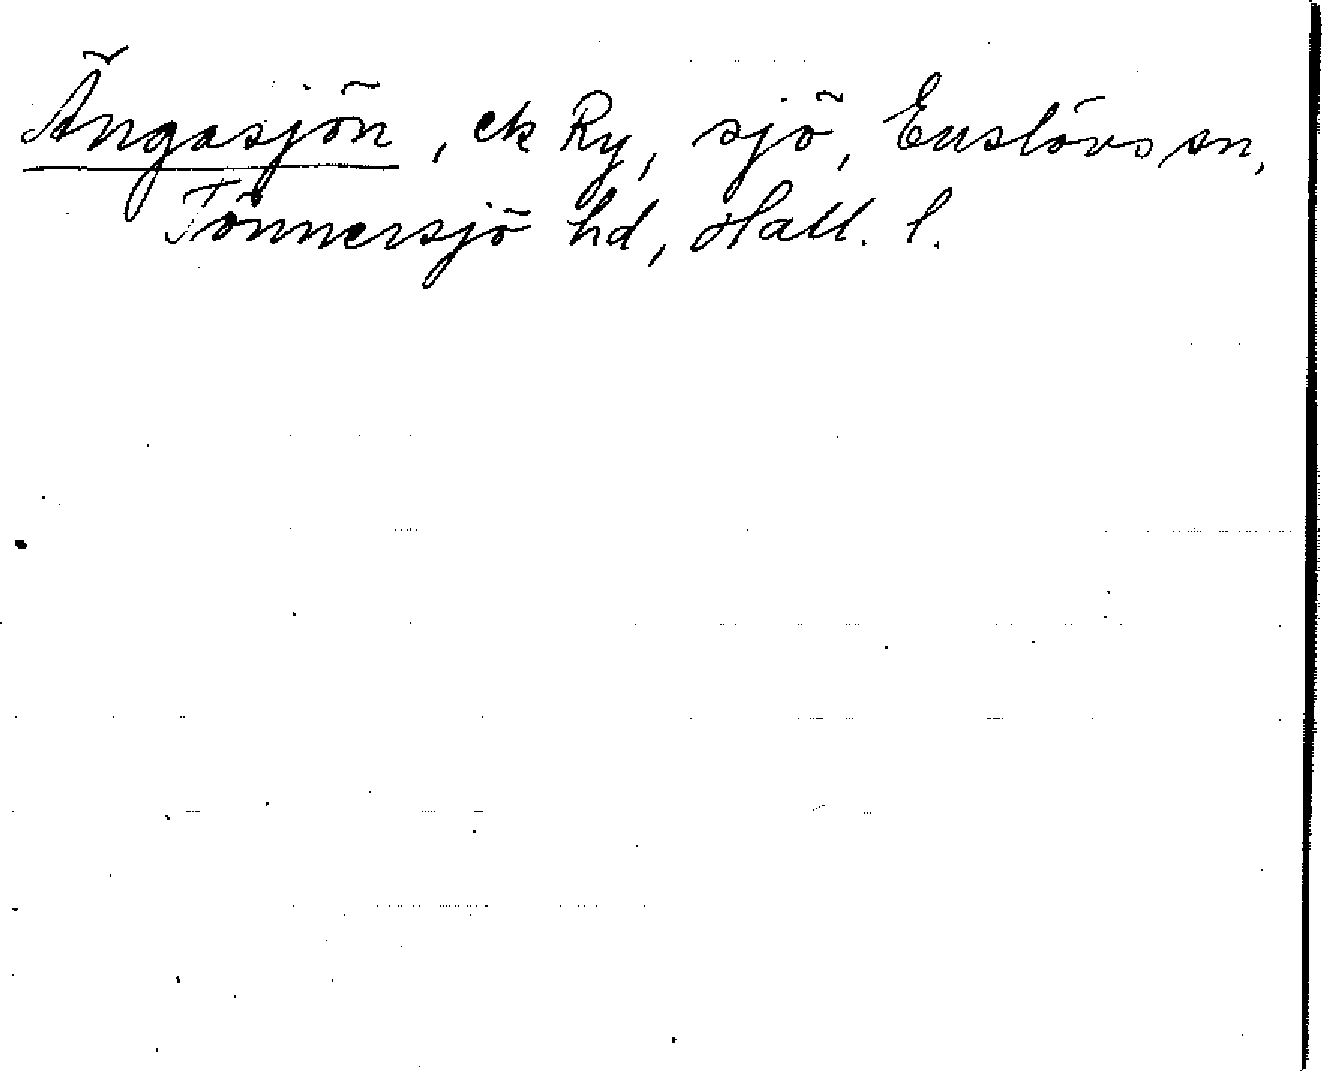 Ängasjön, ek Ry, sjö, Enslövs sn,
Tönnersjö hd, Hall. l.